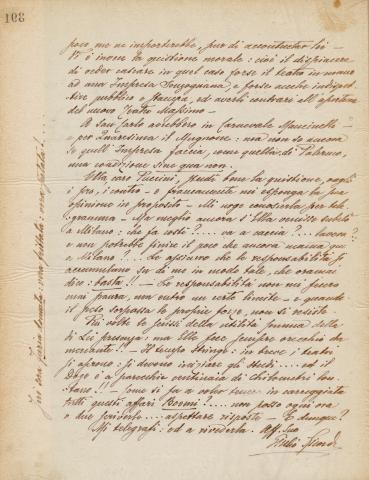 108
poco me ne importerebbe, pur di accontentar lei -
Vi è invece la quistione morale: cioè il dispiacere
di veder cascare in quel caso forse il teatro in mano
ad una Impresa Sonzognana; e forse anche indispet-
tire pubblico e stampa, ed averli contrari all'apertura
del nuovo Teatro Massimo -
A San Carlo avrebbero in Carnevale Mancinelli -
per Quaresima il Mugnone: ma non so ancora
se quell'Impresa faccia, come quella di Palermo,
una condizione sine qua non.
Ella caro Puccini, pesi bene la quistione, vagli
i pro, i contro - e francamente mi esponga la sua
opinione in proposito - Mi urge conoscerla per tele-
gramma - Ma meglio ancora se Ella venisse subito
a Milano: che fa costì?.... va a caccia?.... lavora?
e non potrebbe finire il poco che ancora manca qui
a Milano?.... Le assicuro che le responsabilità si
accumulano su di me in modo tale, che oramai
dico: basta!! - Le responsabilità non mi fecero
mai paura, ma entro un certo limite - e quando
il peso sorpassa le proprie forze, non si resiste -
Più volte le scrissi della utilità somma della
di Lei presenza: ma Ella fece sempre orecchie da
mercante!! - Il tempo stringe: in breve i teatri
si aprono: si devono iniziare gli studi.... ed il
Duce è a parecchie centinaia di chilometri lon-
tano!!! - Come si fa a voler tener in carreggiata
tutti questi affari Bohème?.... non posso ogni ora
o due scriverle.... aspettare risposte - E dunque?
Mi telegrafi: ed a rivederla. Aff. Suo
Giulio Ricordi